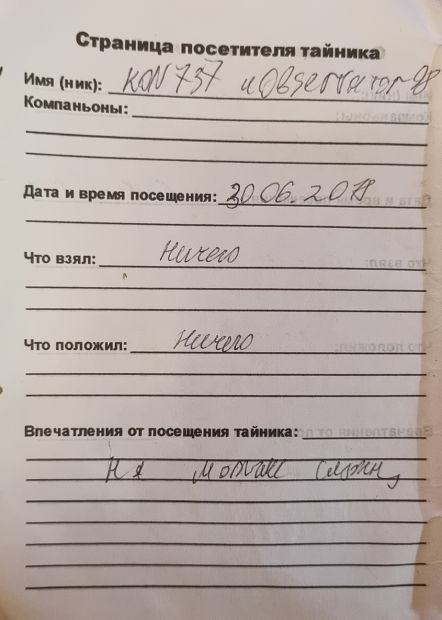 Страница посетителя тайника
Имя (ник): KON 737 и Observator 98
Компаньоны:
Дата и время посещения: 30.06.2018
Что взял: Ничего
Что положил: Ничего
Впечатления от посещения тайника: